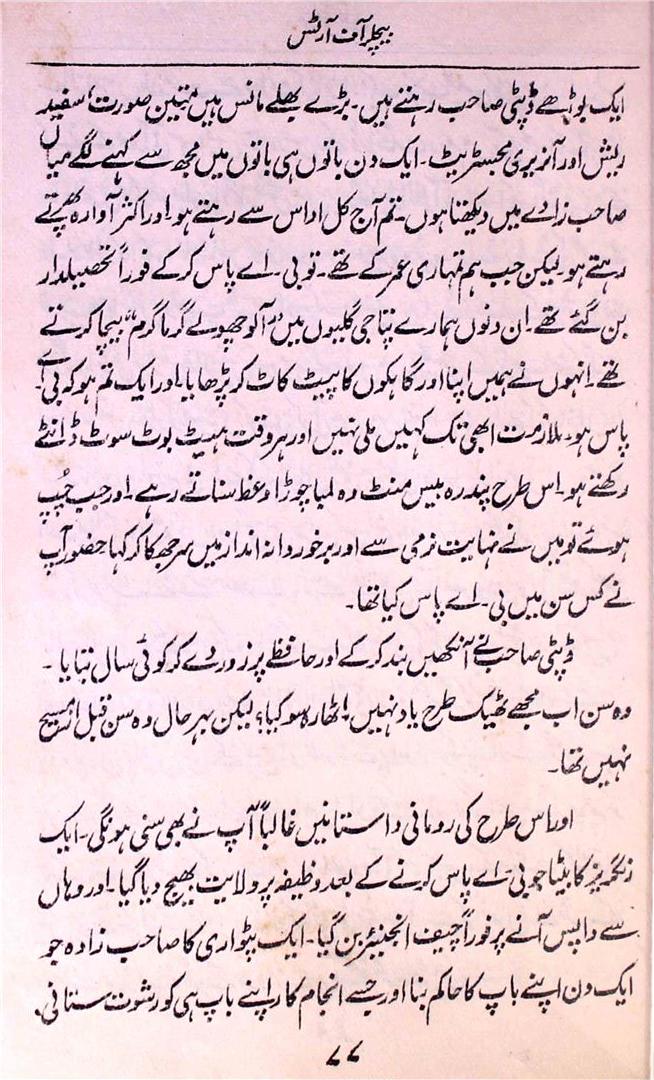 بیچلر آف آرٹس
ایک بوڑھے ڈپٹی صاحب رہتے ہیں۔ بڑے بھلے مانس ہیں متین صورت، سفید
ریش اور آنریری مجسٹریٹ۔ ایک دن باتوں ہی باتوں میں مجھ سے کہنے لگے میاں
صاحب زادے میں دیکھتا ہوں۔ تم آج کل اداس سے رہتے ہو۔ اور اکثر آوارہ پھرتے
رہتے ہو۔ لیکن جب ہم تمہاری عمر کے تھے۔ تو بی۔ اے پاس کر کے فوراً تحصیلدار
بن گئے تھے۔ ان دنوں ہمارے پتا جی گلیوں میں "آلو چھولے گرما گرم" بیچا کرتے
تھے۔ انہوں نے ہمیں اپنا اور گاہکوں کا پیٹ کاٹ کر پڑھایا۔ اور ایک تم ہو کہ بی۔اے۔
پاس ہو۔ ملازمت ابھی تک کہیں ملی نہیں اور ہر وقت ہیٹ بوٹ سوٹ ڈانٹے
رکھتے ہو۔ اس طرح پندرہ بیس منٹ وہ لمبا چوڑا وعظ سناتے رہے۔ اور جب چُپ
ہوئے تو میں نے نہایت نرمی سے اور برخوردارانہ انداز میں سر جھکا کر کہا حضور آپ
نے کس سن میں بی۔ اے پاس کیا تھا۔
ڈپٹی صاحب نے آنکھیں بند کر کے اور حافظے پر زور دے کر کوئی سال بتایا۔
وہ سن اب مجھے ٹھیک طرح یاد نہیں۔ اٹھارہ سو کیا؟ لیکن بہر حال وہ سن قبل از مسیح
نہیں تھا۔
اور اس طرح کی رومانی داستانیں غالباً آپ نے بھی سنی ہونگی۔ ایک
رنگریز کا بیٹا جو بی۔ اے پاس کرنے کے بعد وظیفہ پر ولایت بھیج دیا گیا۔ اور وہاں
سے واپس آنے پر فوراً چیف انجینئر بن گیا۔ ایک پٹواری کا صاحب زادہ جو
ایک دن اپنے باپ کا حاکم بنا اور جسے انجام کار اپنے باپ ہی کو رشوت ستانی
۷۷